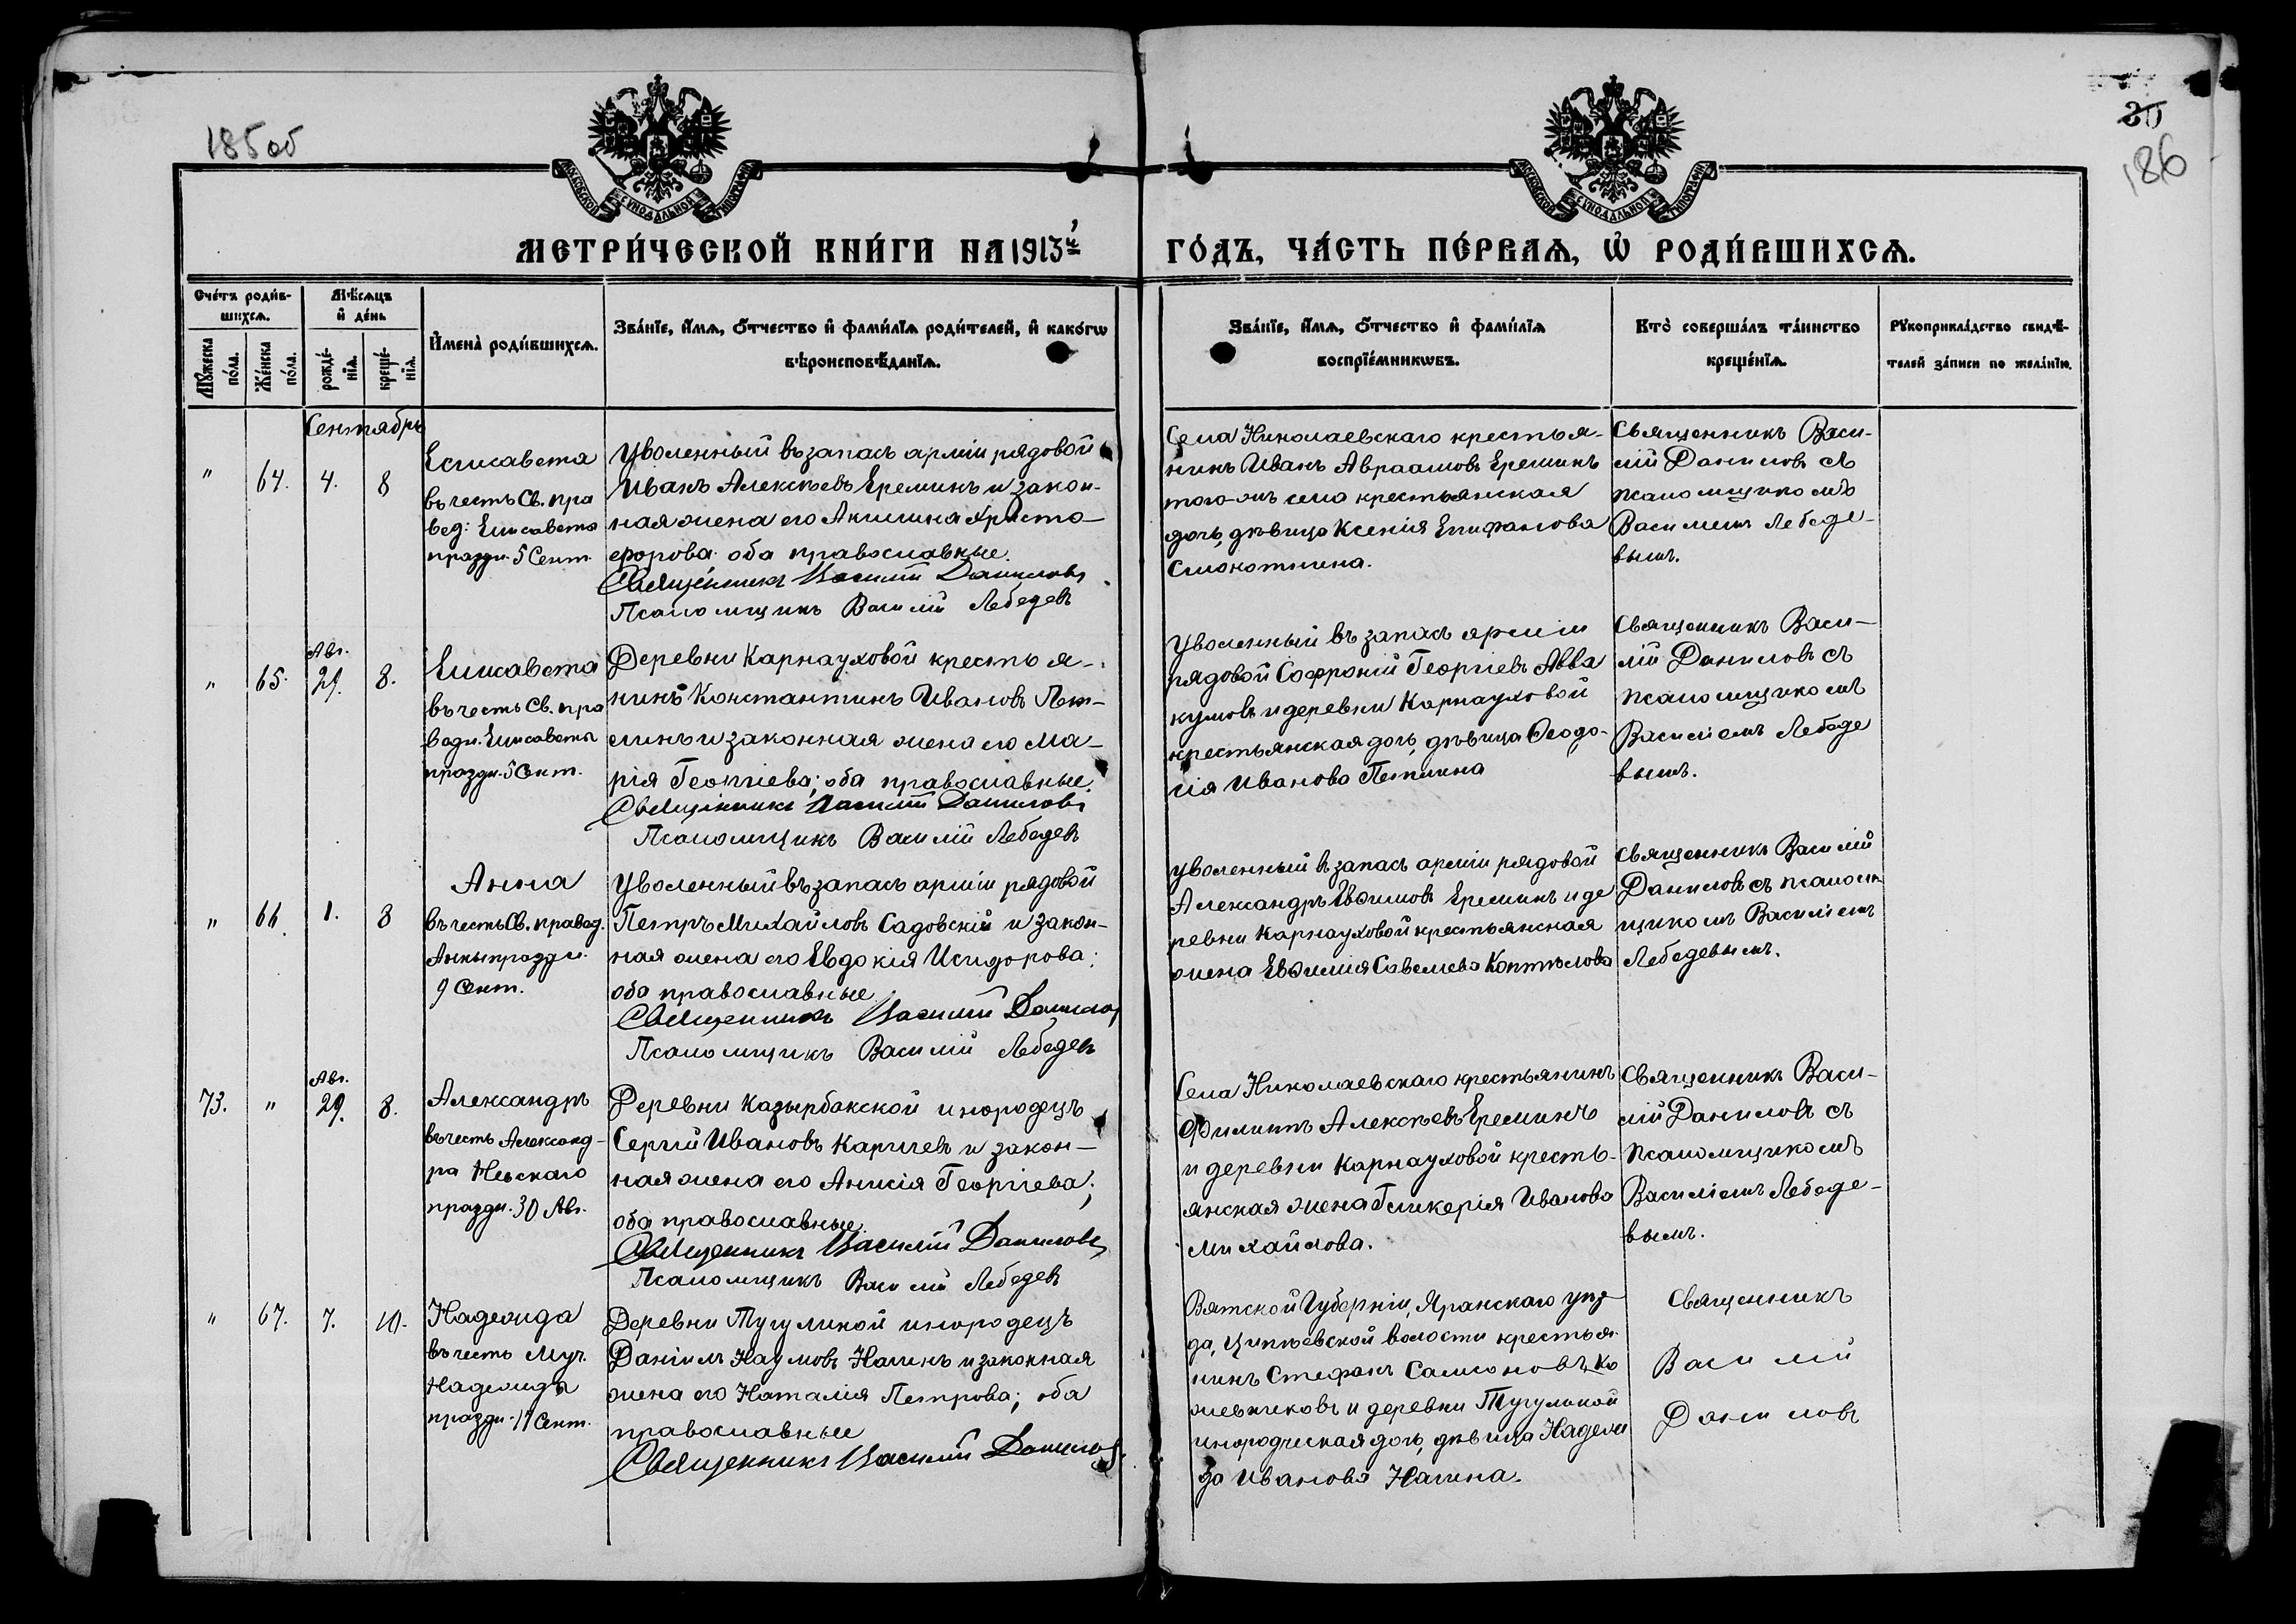 185 об
30
186
МОСКОВСКОЙ СѴНОДАЛЬНОЙ ТИПОГРАФІИ
МОСКОВСКОЙ СѴНОДАЛЬНОЙ ТИПОГРАФІИ
МЕТРИ́ЧЕСКОЙ КНИ́ГИ НА 1913й
ГО́ДЪ, ЧА́СТЬ ПЕ́РВАѦ, Ѡ҆ РОДИ́ВШИХСѦ.
Сче́тъ роди́в-
шихсѧ.
Мꙋ́жеска
по́ла.
Же́нска
по́ла.
Мѣ́сѧцъ
и҆ де́нь
рожде́-
нїѧ.
креще́-
нїѧ.
И҆мена̀ роди́вшихсѧ.
Зва́нїе, и҆́мѧ, ѻ҆́тчество и҆ фами́лїѧ роди́телей, и҆ како́гѡ
вѣроисповѣ́данїѧ.
Зва́нїе, и҆́мѧ, ѻ҆́тчество и҆ фами́лїѧ
воспрїе́мникѡвъ.
Кто̀ соверша́лъ та́инство
креще́нїѧ.
Рꙋкоприкла́дство свидѣ́-
телей за́писи по жела́нїю.
Сентябрь
" 64. 4. 8
Елисавета
въ честь Св. пра
вед: Елисавета
праздн. 5 Сент.
Уволенный въ запасъ арміи рядовой
Иванъ Алексѣевъ Ереминъ и закон-
ная жена его Акилина Христо-
форова: оба православные.
Священникъ Василій Даниловъ
Псаломщикъ Василій Лебедевъ
Села Николаевскаго крестья-
нинъ Иванъ Авраамовъ Ереминъ
того-жъ села крестьянская
дочь, дѣвица Ксенія Епифанова
Смокотнина.
Священникъ Васи-
лій Даниловъ съ
псаломщикомъ
Василіемъ Лебеде-
вымъ.
" 65. Авг. 29. 8.
Елисавета
въ честь Св. пра
ведн. Елисаветы
праздн. 5 Сент.
Деревни Карнауховой крестья-
нинъ Константинъ Ивановъ Пет-
линъ и законная жена его Ма-
рія Георгіева; оба православные.
Священникъ Василій Даниловъ
Псаломщикъ Василій Лебедевъ
Уволенный въ запасъ арміи
рядовой Софроній Георгіевъ Авва
кумовъ и деревни Карнауховой
крестьянская дочь, дѣвица Ѳеодо-
сія Иванова Петлина
Священникъ Васи-
лій Даниловъ съ
псаломщикомъ
Василіемъ Лебеде
вымъ.
" 66. 1. 8
Анна
въ честь Св. правед.
Анны праздн.
9 Сент.
Уволенный въ запасъ арміи рядовой
Петръ Михайловъ Садовскій и закон-
ная жена его Евдокія Исидорова;
оба православные.
Священникъ Василій Данилов
Псаломщикъ Василій Лебедевъ
Уволенный въ запасъ арміи рядовой
Александръ Ереминъ и де
ревни Карнауховой крестьянская
жена Евѳимія Савелиева Коптѣлова
Священникъ Василій
Даниловъ съ псалом
щикомъ Василіемъ
Лебедевымъ.
73. " Авг. 29. 8.
Александръ
въ честь Александ-
ра Невскаго
праздн. 30 Авг.
Деревни Казырбакской инородецъ
Сергій Ивановъ Каргчевъ и закон-
ная жена его Анисія Георгіева;
оба православные.
Священникъ Василій Даниловъ
Псаломщикъ Василій Лебедевъ
Села Николаевскаго крестьянинъ
Филиппъ Алексѣевъ Ереминъ
и деревни Карнауховой кресть-
янская жена Гликерія Иванова
Михайлова.
Священникъ Васи-
лій Даниловъ съ
псаломщикомъ
Василіемъ Лебеде-
вымъ.
" 67. 7. 10.
Надежда
въ честь Муч.
Надежды
праздн. 17 Сент.
Деревни Тугулиной инородецъ
Даніилъ Наумовъ Нагинъ и законная
жена его Наталія Петрова; оба
православные
Священникъ Василій Даниловъ.
Вятской Губерніи, Яранскаго уѣз-
да, Ципѣевской волости крестья-
нинъ Стефанъ Самсоновъ Ко
жевниковъ и деревни Тугулиной
инородческая дочь, дѣвица Надеж
да Иванова Нагина.
Священникъ
Василій
Даниловъ